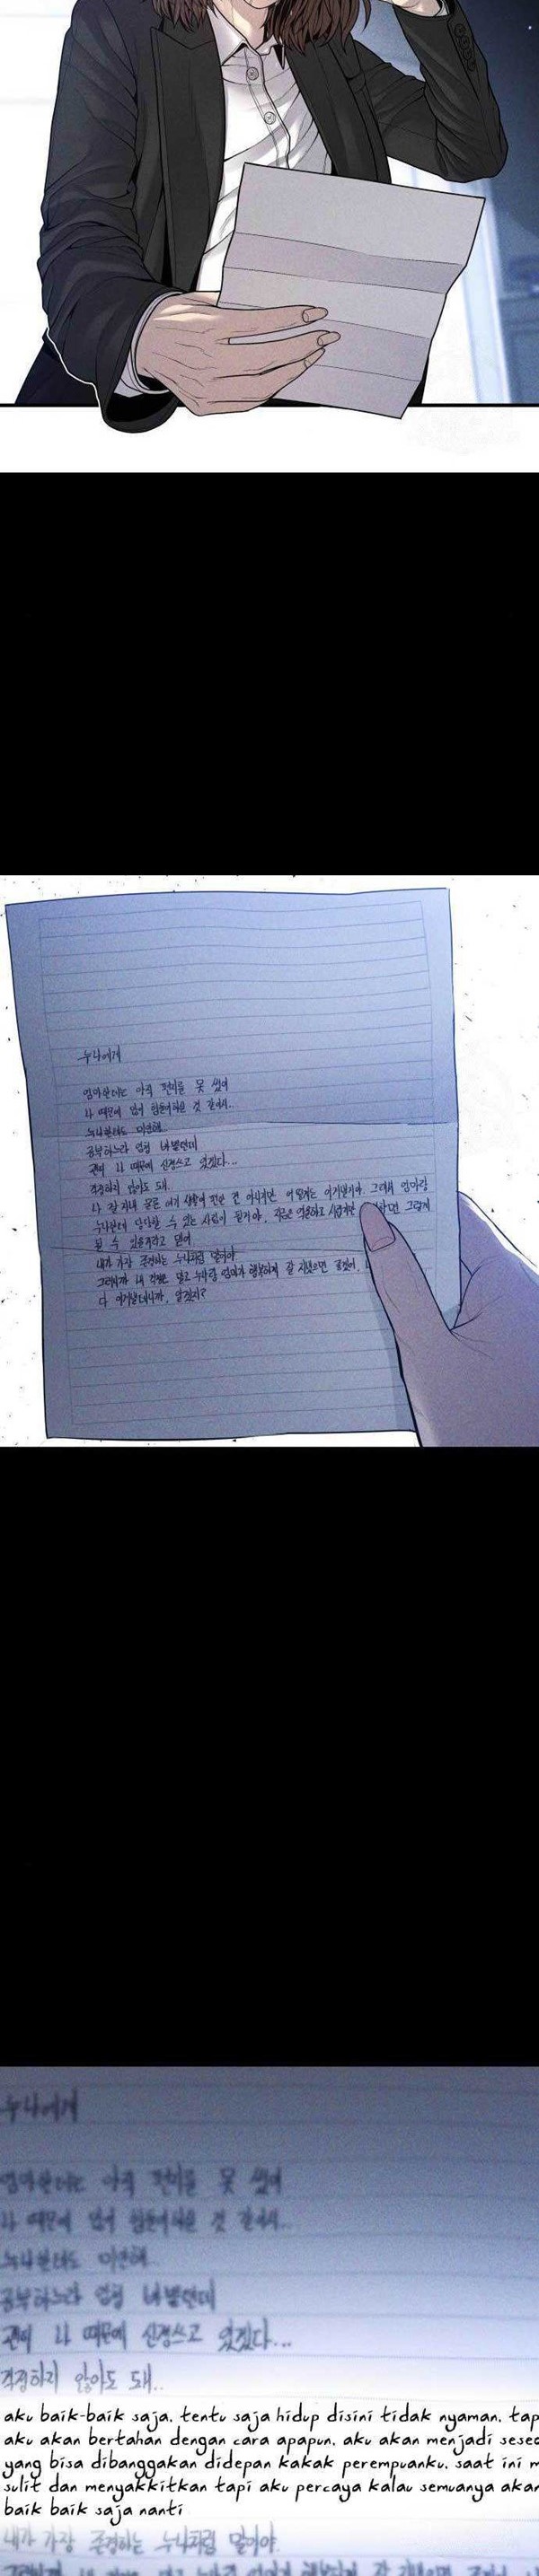 누나에게
엄마한테는 아직 편지를 못 썼어
나 때문에 많이 힘들어하실 것 같아서..
누나한테도 미안해..
공부하느라 엄청 바쁠텐데
괜히 나 때문에 신경쓰고 있겠다...
걱정하지 않아도 돼..
나 잘 지내 물론 여기 생활이 편한 건 아니지만 어떻게든 이겨낼거야. 그래서 엄마랑
누나한테 당당할 수 있는 사람이 될거야. 지금은 억울하고 시럽지만 그렇게
될 수 있을거라고 믿어
내가 가장 존경하는 누나처럼 말이야
그러니까 내 걱정은 말고 누나랑 엄마가 행복하게 잘 지냈으면 좋겠어.
다 이겨낼테니까, 알겠지?
누나에게
엄마한테는 아직 편지를 못 썼어
나 때문에 많이 힘들어하실 것 같아서..
누나한테도 미안해..
공부하느라 엄청 바쁠텐데
괜히 나 때문에 신경쓰고 있겠다...
걱정하지 않아도 돼..
aku baik-baik saja. tentu saja hidup disini tidak nyaman. tap
aku akan bertahan dengan cara apapun. aku akan menjadi sese
yang bisa dibanggakan didepan kakak perempuanku. saat ini m
sulit dan menyakkitkan tapi aku percaya kalau semuanya akan
baik baik saja nanti
내가 가장 존경하는 누나처럼 말이야